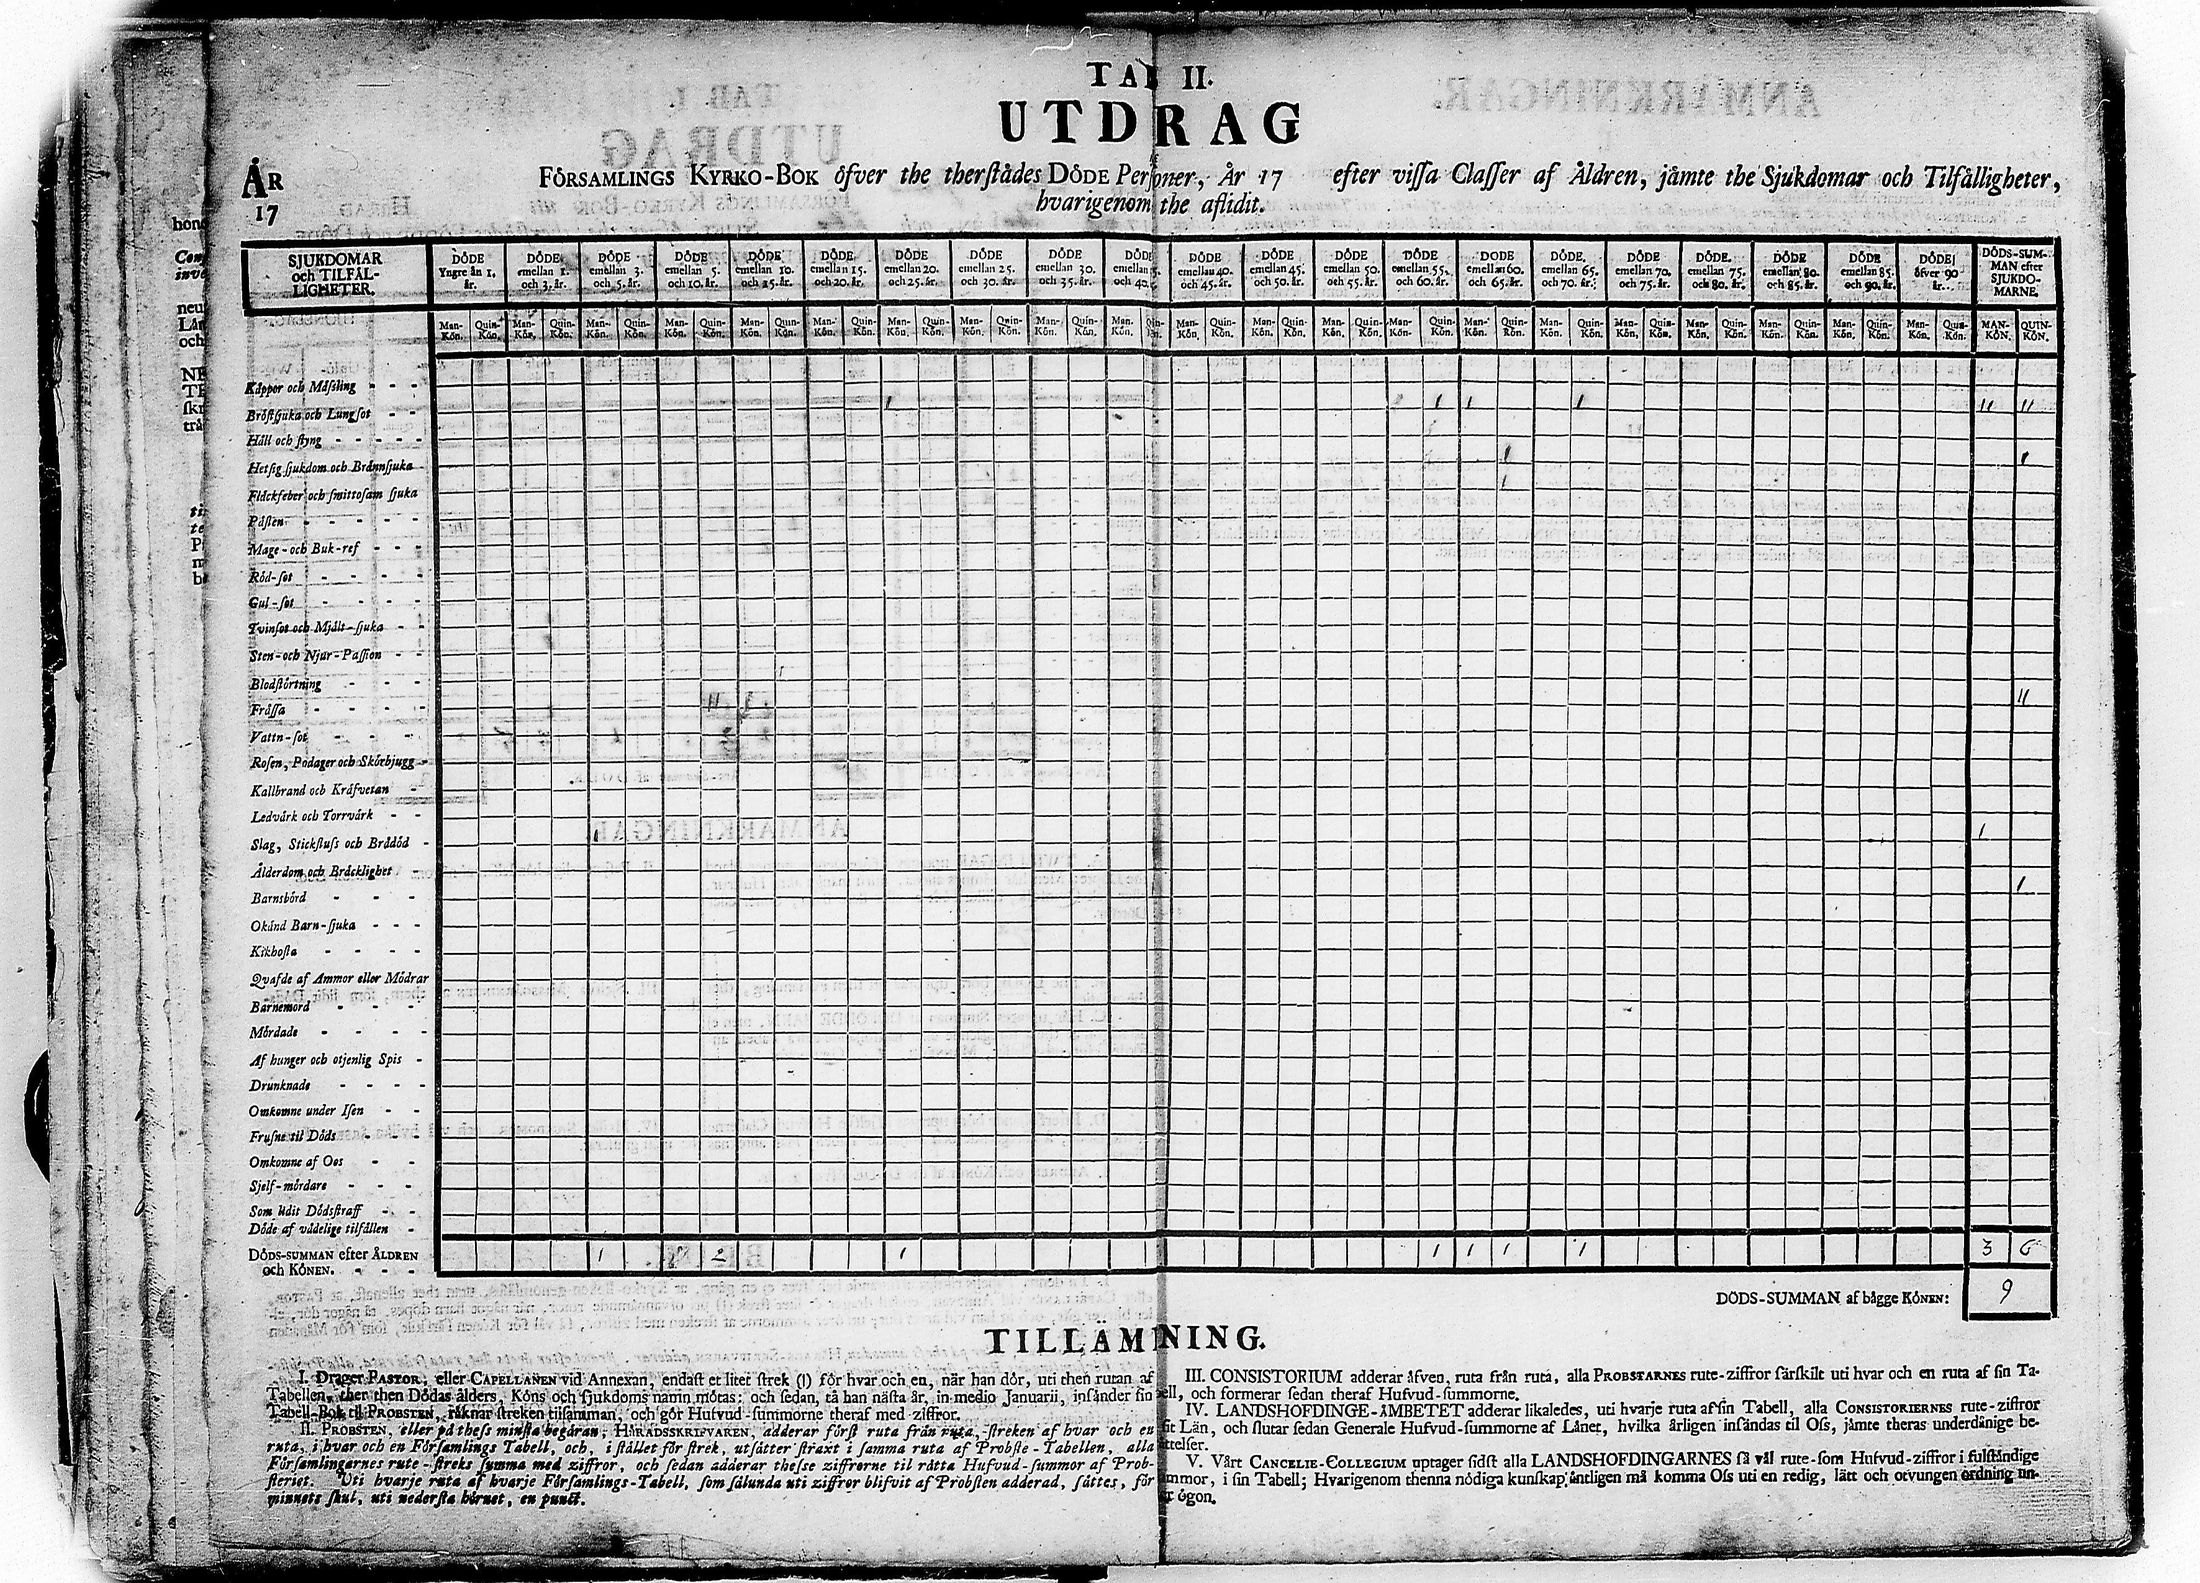 TAB II.
UTDRAG
ÅR
17
FÖRSAMLINGS KYRKO-BOK öfver the therstädes DÖDE Personer, År 17 efter vissa Classer af Åldren, jämte the Sjukdomar och Tilfälligheter,
hvarigenom the aflidit.
SJUKDOMAR
och TILFÄL-
LIGHETER.
DÖDE Yngre än 1. år.
DÖDE emellan 1. och 3. år.
DÖDE emellan 3. och 5. år.
DÖDE emellan 5. och 10. år.
DÖDE emellan 10. och 15. år.
DÖDE emellan 15. och 20. år.
DÖDE emellan 20. och 25. år.
DÖDE emellan 25. och 30. år.
DÖDE emellan 30. och 35. år.
DÖDE och 40.
DÖDE emellan 40. och 45. år.
DÖDE emellan 45. och 50. år.
DÖDE emellan 50. och 55. år.
DÖDE emellan 55. och 60. år.
DÖDE emellan 60. och 65. år.
DÖDE emellan 65. och 70. år.
DÖDE emellan 70. och 75. år.
DÖDE. emellan 75. och 80. år.
DÖDE emellan 80. och 85. år.
DÖDE emellan 85. och 90. år.
DÖDE öfver 90 år.
DÖDS-SUM-MAN efter SJUKDO-MARNE.
Man-Kön. Quin-Kön. Man-Kön. Quin-Kön. Man-Kön. Quin-Kön. Man-Kön. Quin-Kön. Man-Kön. Quin-Kön. Man-Kön. Quin-Kön. Man-Kön. Quin-Kön. Man-Kön. Quin-Kön. Man-Kön. Quin-Kön. Man-Kön. Quin-Kön. Man-Kön. Quin-Kön. Man-Kön. Quin-Kön. Man-Kön. Quin-Kön. Man-Kön. Quin-Kön. Man-Kön. Quin-Kön. Man-Kön. Quin-Kön. Man-Kön. Quin-Kön. Man-Kön. Quin-Kön. Man-Kön. Quin-Kön. Man-Kön. Quin-Kön. Man-Kön. Quin-Kön. MAN-KÖN. QUIN-KÖN.
Kåppor och Mäsling - - -
Bröstsjuka och Lungsot - - 1 1 1 1 11 11
Håll och styng - - - - -
Hetsig sjukdom och Brännsjuka 1 1
Fläckfeber och smittosam sjuka 1
Pästen - - - - -
Mage-och Buk-ref - - -
Röd-sot - - - -
Gul-sot - - - -
Tvinsot och Mjält-sjuka - -
Sten-och Njur-Passion - -
Blodstörtning - - -
Frässa - - - - 11 11
Vattn-sot - - -
Rosen, Podager och Skörbjugg -
Kallbrand och Kräfvetan -
Ledvärk och Torrvärk - -
Slag, Stickfluss och Brådöd - 1 1
Ålderdom och Bräcklighet -
Barnsbörd - - - 1
Okänd Barn-sjuka - - -
Kikhosta - - -
Qvafde af Ammor eller Mödrar
Barnemord - - -
Mördade - - - -
Af hunger och otjenlig Spis -
Drunknade - - - -
Omkomne under Isen - -
Frusne til Döds - - -
Omkomne af Oos - -
Sjelf-mördare - - -
Som lidit Dödsstraff - -
Döde af vådelige tilfällen -
DÖDS-SUMMAN efter ÅLDREN 1 2 1 1 1 1 1 3 6
och KÖNEN. - - -
DÖDS-SUMMAN af bägge KÖNEN: 9
TILLÄMNING.
I. Drager PASTOR, eller CAPELLANEN vid Annexan, endast et litet strek (1) för hvar och en, när han dör, uti then rutan af
Tabellen, ther then Dödas ålders, Köns och sjukdoms namn mötas: och sedan, tå han nästa år, in medio Januarii, insänder sin
Tabell-Bok til PROBSTEN, räknar streken tilsamman, och gör Hufvud-summorne theraf med ziffror.
II. PROBSTEN, eller på thess minsta begäran, HÄRADSSKRIFVAREN, adderar först ruta från ruta, streken af hvar och en
ruta, i hvar och en Församlings Tabell, och, i stället för strek, utsätter straxt i samma ruta af Probste-Tabellen, alla
Församlingarnes rute-streks summa med ziffror, och sedan adderar thesse ziffrorne til rätta Hufvud-summor af Prob-
steriet. Uti hvarje ruta af hvarje Församlings-Tabell, som sålunda uti ziffror blifvit af Probsten adderad, sättes, för
minnets skul, uti nedersta hörnet, en punct.
III. CONSISTORIUM adderar äfven, ruta från ruta, alla PROBSTARNES rute-ziffror särskilt uti hvar och en ruta af sin Ta-
bell, och formerar sedan theraf Hufvud-summorne.
IV. LANDSHOFDINGE-ÄMBETET adderar likaledes, uti hvarje ruta af sin Tabell, alla CONSISTORIERNES rute-ziffror
sit Län, och slutar sedan Generale Hufvud-summorne af Länet, hvilka årligen insändas til Oss, jämte theras underdånige be-
rättelser.
V. Vårt CANCELIE-COLLEGIUM uptager sidst alla LANDSHOFDINGARNES så väl rute-som Hufvud-ziffror i fulständige
summor, i sin Tabell; Hvarigenom thenna nödiga kunskap äntligen må komma Oss uti en redig, lätt och otvungen ordning un-
ögon.